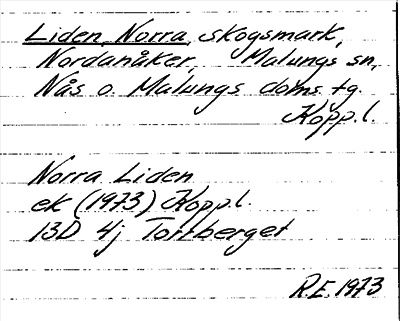 Liden, Norra, skogsmark,
Nordanåker, Malungs sn,
Nås o. Malungs doms. tg.
Kopp.l.
Norra Liden
ek (1973) Kopp.l.
13D 4j Torrberget
R.E. 1973